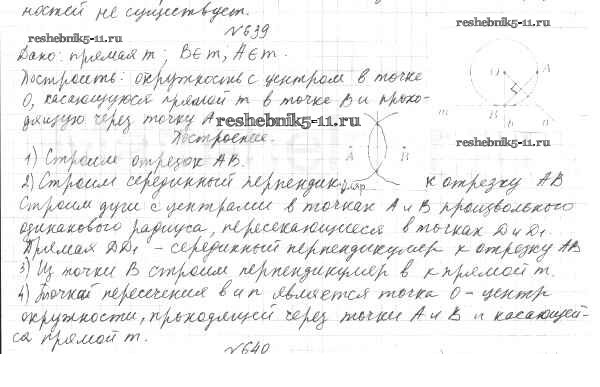 ностей не существует.
№639
reshebnik5-11.ru
Дано: прямая m; B∈m; A∈m.
Построить: окружность с центром в точке
O, касающуюся прямой m в точке B и прохо-
дящую через точку A
reshebnik5-11.ru
O
A
m
B
reshebnik5-11.ru
Построение.
1) Строим отрезок AB.
A
B
2) Строим серединный перпендикуляр к отрезку AB
Строим дуги с центрами в точках A и B произвольного
одинакового радиуса, пересекающиеся в точках D и D₁.
Прямая DD₁ – серединный перпендикуляр к отрезку AB
3) Из точки B строим перпендикуляр b к прямой m.
4) Точкой пересечения b и n является точка O – центр
окружности, проходящей через точки A и B и касающей-
ся прямой m.
№640